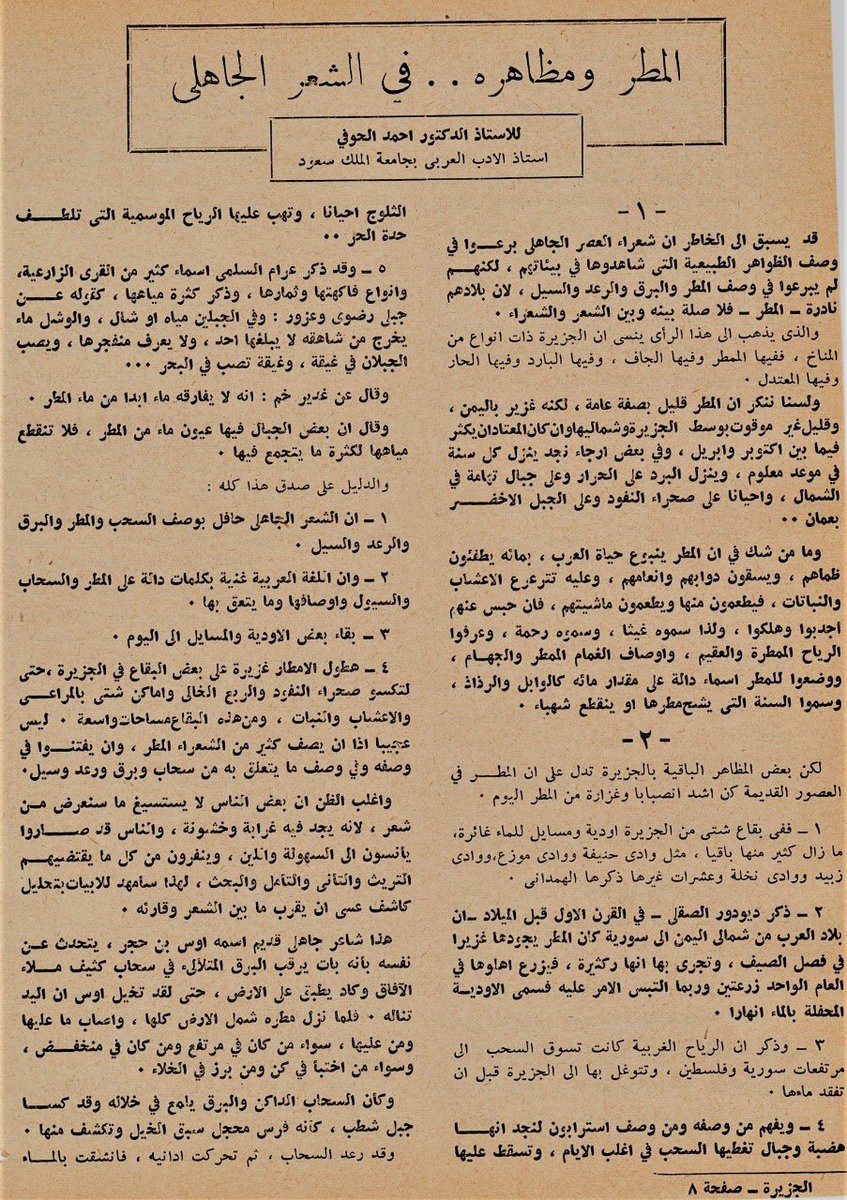 المطر ومظاهره . . في الشعر الجاهلى
للاستاذ الدكتور احمد الحوفي
استاذ الادب العربى بجامعة الملك سعود
- ١ -
قد يسبق الى الخاطر ان شعراء العصر الجاهلى برعوا في
وصف الظواهر الطبيعية التى شاهدوها في بيئاتهم ، لكنهم
لم يبرعوا في وصف المطر والبرق والرعد والسيل ، لان بلادهم
نادرة ـ المطر ـ فلا صلة بينه وبين الشعر والشعراء ٠
والذى يذهب الى هذا الرأى ينسى ان الجزيرة ذات انواع من
المناخ ، ففيها الممطر وفيها الجاف ، وفيها البارد وفيها الحار
وفيها المعتدل ٠
ولسنا ننكر ان المطر قليل بصفة عامة ، لكنه غزير باليمن ،
وقليل غير موقوت بوسط الجزيرة وشماليها وان كان المعتادان يكثر
فيما بين اكتوبر وابريل ، وفي بعض ارجاء نجد ينزل كل سنة
في موعد معلوم ، وينزل البرد على الحرار وعلى جبال تهامة في
الشمال ، واحيانا على صحراء النفود وعلى الجبل الاخضر
بعمان ٠٠
وما من شك في ان المطر ينبوع حياة العرب ، بمائه يطفئون
ظماهم ، ويسقون دوابهم وانعامهم ، وعليه تترعرع الاعشاب
والنباتات ، فيطعمون منها ويطعمون ماشيتهم ، فان حبس عنهم
اجدبوا وهلكوا ، ولذا سموه غيثا ، وسموه رحمة ، وعرفوا
الرياح الممطرة والعقيم ، واوصاف الغمام الممطر والجهام ،
ووضعوا للمطر اسماء دالة على مقدار مائه كالوابل والرذاذ ،
وسموا السنة التى يشح مطرها او ينقطع شهباء ٠
- ٢ -
لكن بعض المظاهر الباقية بالجزيرة تدل على ان المطر في
العصور القديمة كن اشد انصبابا وغزارة من المطر اليوم ٠
١ ـ ففى بقاع شتى من الجزيرة اودية ومسايل للماء غائرة،
ما زال كثير منها باقيا ، مثل وادى حنيفة ووادى موزع،ووادى
زبيد ووادى نخلة وعشرات غيرها ذكرها الهمدانى ٠
٢ ـ ذكر ديودور الصقلى ـ في القرن الاول قبل الميلاد ـ ان
بلاد العرب من شمالى اليمن الى سورية كان المطر يجودها غزيرا
في فصل الصيف ، وتجرى بها انها ركثيرة ، فيزرع اهلوها في
العام الواحد زرعتين وربما التبس الامر عليه فسمى الاودية
المحفلة بالماء انهارا ٠
٣ ـ وذكر ان الرياح الغربية كانت تسوق السحب الى
مرتفعات سورية وفلسطين ، وتتوغل بها الى الجزيرة قبل ان
تفقد ماءها ٠
٤ ـ ويفهم من وصفه ومن وصف استرابون لنجد انها
هضبة وجبال تغطيها السحب في اغلب الايام ، وتسقط عليها
الثلوج احيانا ، وتهب عليها الرياح الموسمية التى تلطف
حدة الحر ٠٠
٥ ـ وقد ذكر عرام السلمى اسماء كثير من القرى الزارعية،
وانواع فاكهتها وثمارها ، وذكر كثرة مياهها ، كقوله عن
جبلى رضوى وعزور : وفي الجبلين مياه او شال ، والوشل ماء
يخرج من شاهقه لا يبلغها احد ، ولا يعرف منفجرها ، ويصب
الجبلان في غيقة ، وغيقة تصب في البحر ٠٠٠
وقال عن غدير خم : انه لا يفارقه ماء ابدا من ماء المطر ٠
وقال ان بعض الجبال فيها عيون ماء من المطر ، فلا تنقطع
مياهها لكثرة ما يتجمع فيها ٠
والدليل على صدق هذا كله :
١ ـ ان الشعر الجاهلى حافل بوصف السحب والمطر والبرق
والرعد والسيل ٠
٢ ـ وان اللغة العربية غنية بكلمات دالة على المطر والسحاب
والسيول واوصافها وما يتعلق بها ٠
٣ ـ بقاء بعض الاودية والمسايل الى اليوم ٠
٤ ـ هطول الامطار غزيرة على بعض البقاع في الجزيرة ،حتى
لتكسو صحراء النفود والربع الخالى واماكن شتى بالمراعى
والاعشاب والنبات ، ومن هذه البقاع مساحات واسعة ٠ ليس
عجيبا اذا ان يصف كثير من الشعراء المطر ، وان يفتنوا في
وصفه وفي وصف ما يتعلق به من سحاب وبرق ورعد وسيل٠
واغلب الظن ان بعض الناس لا يستسيغ ما سنعرض من
شعر ، لانه يجد فيه غرابة وخشونة ، والناس قد صاروا
يأنسون الى السهولة واللين ، وينفرون من كل ما يقتضيهم
التريث والتأنى والتأمل والبحث ، لهذا سأمهد للابيات بتحليل
كاشف عسى ان يقرب ما بين الشعر وقارئه ٠
هذا شاعر جاهلى قديم اسمه اوس بن حجر ، يتحدث عن
نفسه بأنه بات يرقب البرق المتلألىء في سحاب كثيف ملاء
الآفاق وكاد يطبق على الارض ، حتى لقد تخيل اوس ان اليد
تناله ٠ فلما نزل مطره شمل الارض كلها ، واصاب ما عليها
ومن عليها ، سواء من كان في مرتفع ومن كان في منخفض ،
وسواء من اختبأ في كن ومن برز في الخلاء ٠
وكأن السحاب الداكن والبرق يلمع في خلاله وقد كسا
جبل شطب ، كأنه فرس محجل سبق الخيل وتكشف منها ٠
وقد رعد السحاب ، ثم تحركت ادانيه ، فانشقت بالماء
الجزيرة ـ صفحة ٨